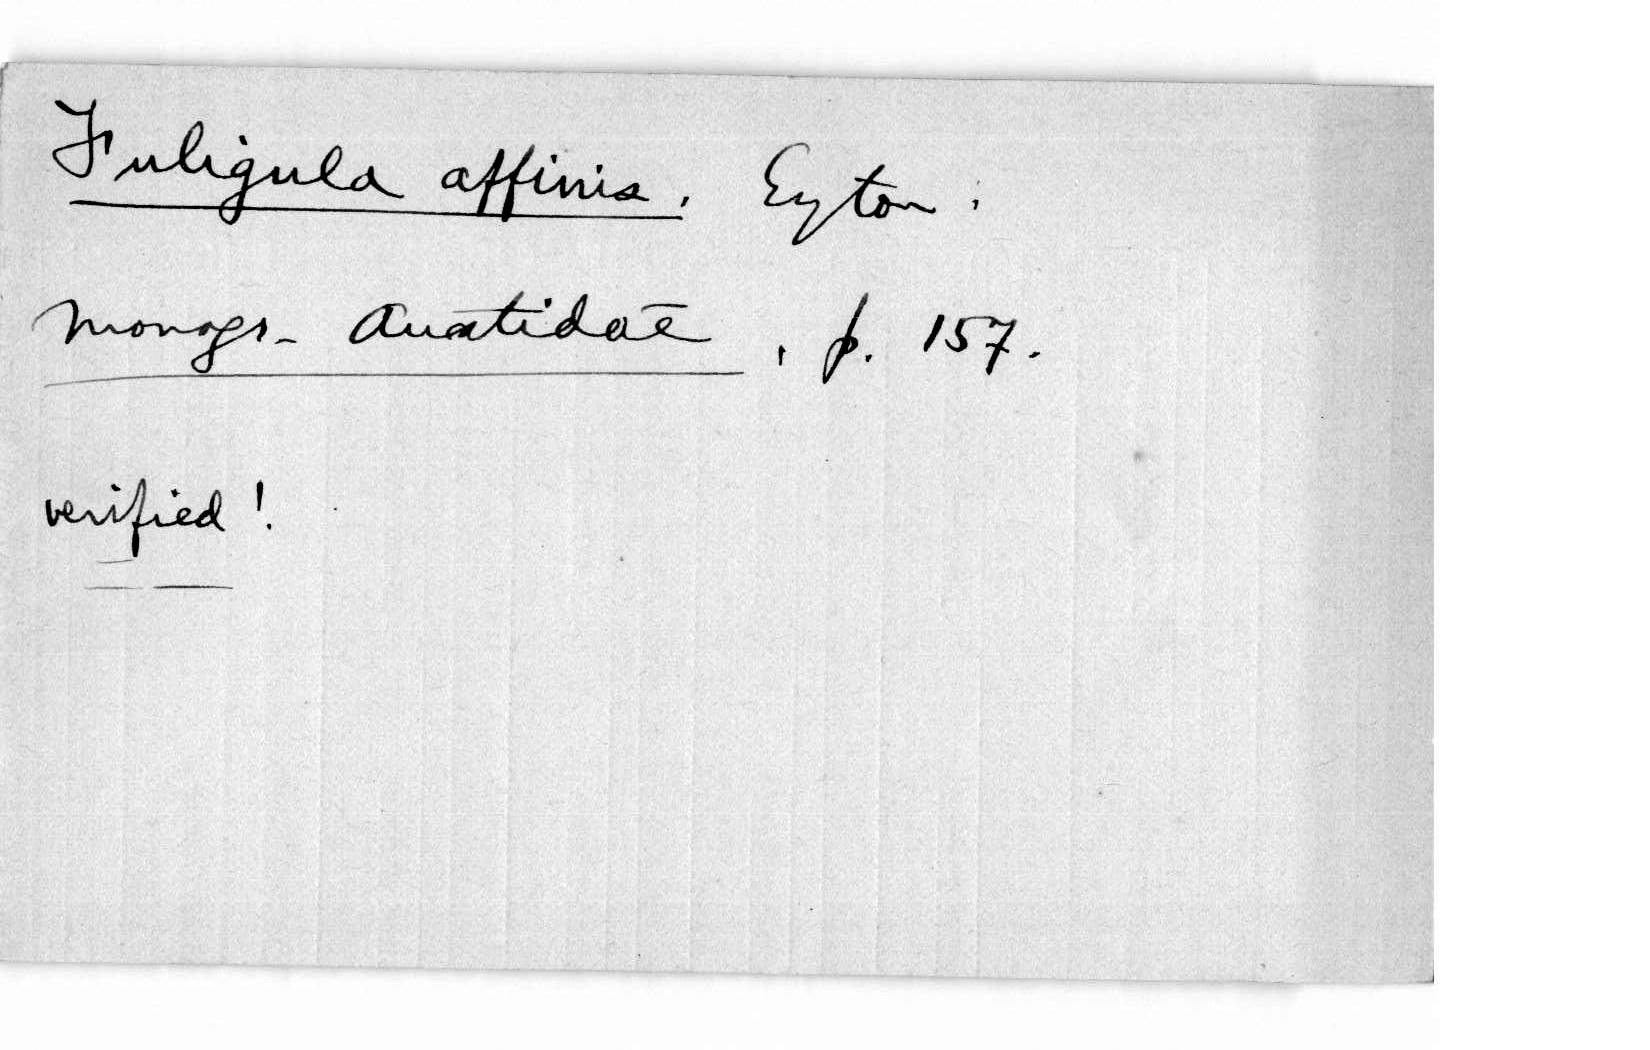 Fuligula affinis, Eyton,
Monogr. Anatidae, p. 157.
verified!